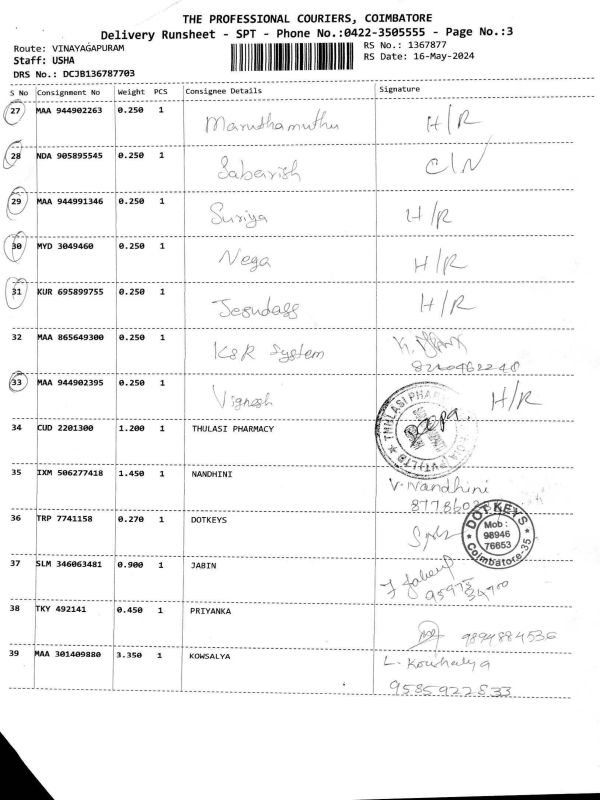 THE PROFESSIONAL COURIERS, COIMBATORE
Delivery Runsheet - SPT - Phone No.:0422-3505555 - Page No.:3
Route: VINAYAGAPURAM RS No.: 1367877
Staff: USHA RS Date: 16-May-2024
DRS No.: DCJB136787703
S No Consignment No Weight PCS Consignee Details Signature
27 MAA 944902263 0.250 1 Maruthamuthu H/R
28 NDA 905895545 0.250 1 Sabarish C/N
29 MAA 944991346 0.250 1 Suriya H/R
30 MYD 3049460 0.250 1 Nega H/R
31 KUR 695899755 0.250 1 Jesudass H/R
32 MAA 865649300 0.250 1 KSR System
33 MAA 944902395 0.250 1 Vignesh H/R
34 CUD 2201300 1.200 1 THULASI PHARMACY
THULASI PHAR
35 IXM 506277418 1.450 1 NANDHINI V. Nandhini
36 TRP 7741158 0.270 1 DOTKEYS
DOT KEYS
Mob :
98946
76653
Coimbatore-35
37 SLM 346063481 0.900 1 JABIN
38 TKY 492141 0.450 1 PRIYANKA 9894884536
39 MAA 301409880 3.350 1 KOWSALYA L. Kowhalya
9585922833